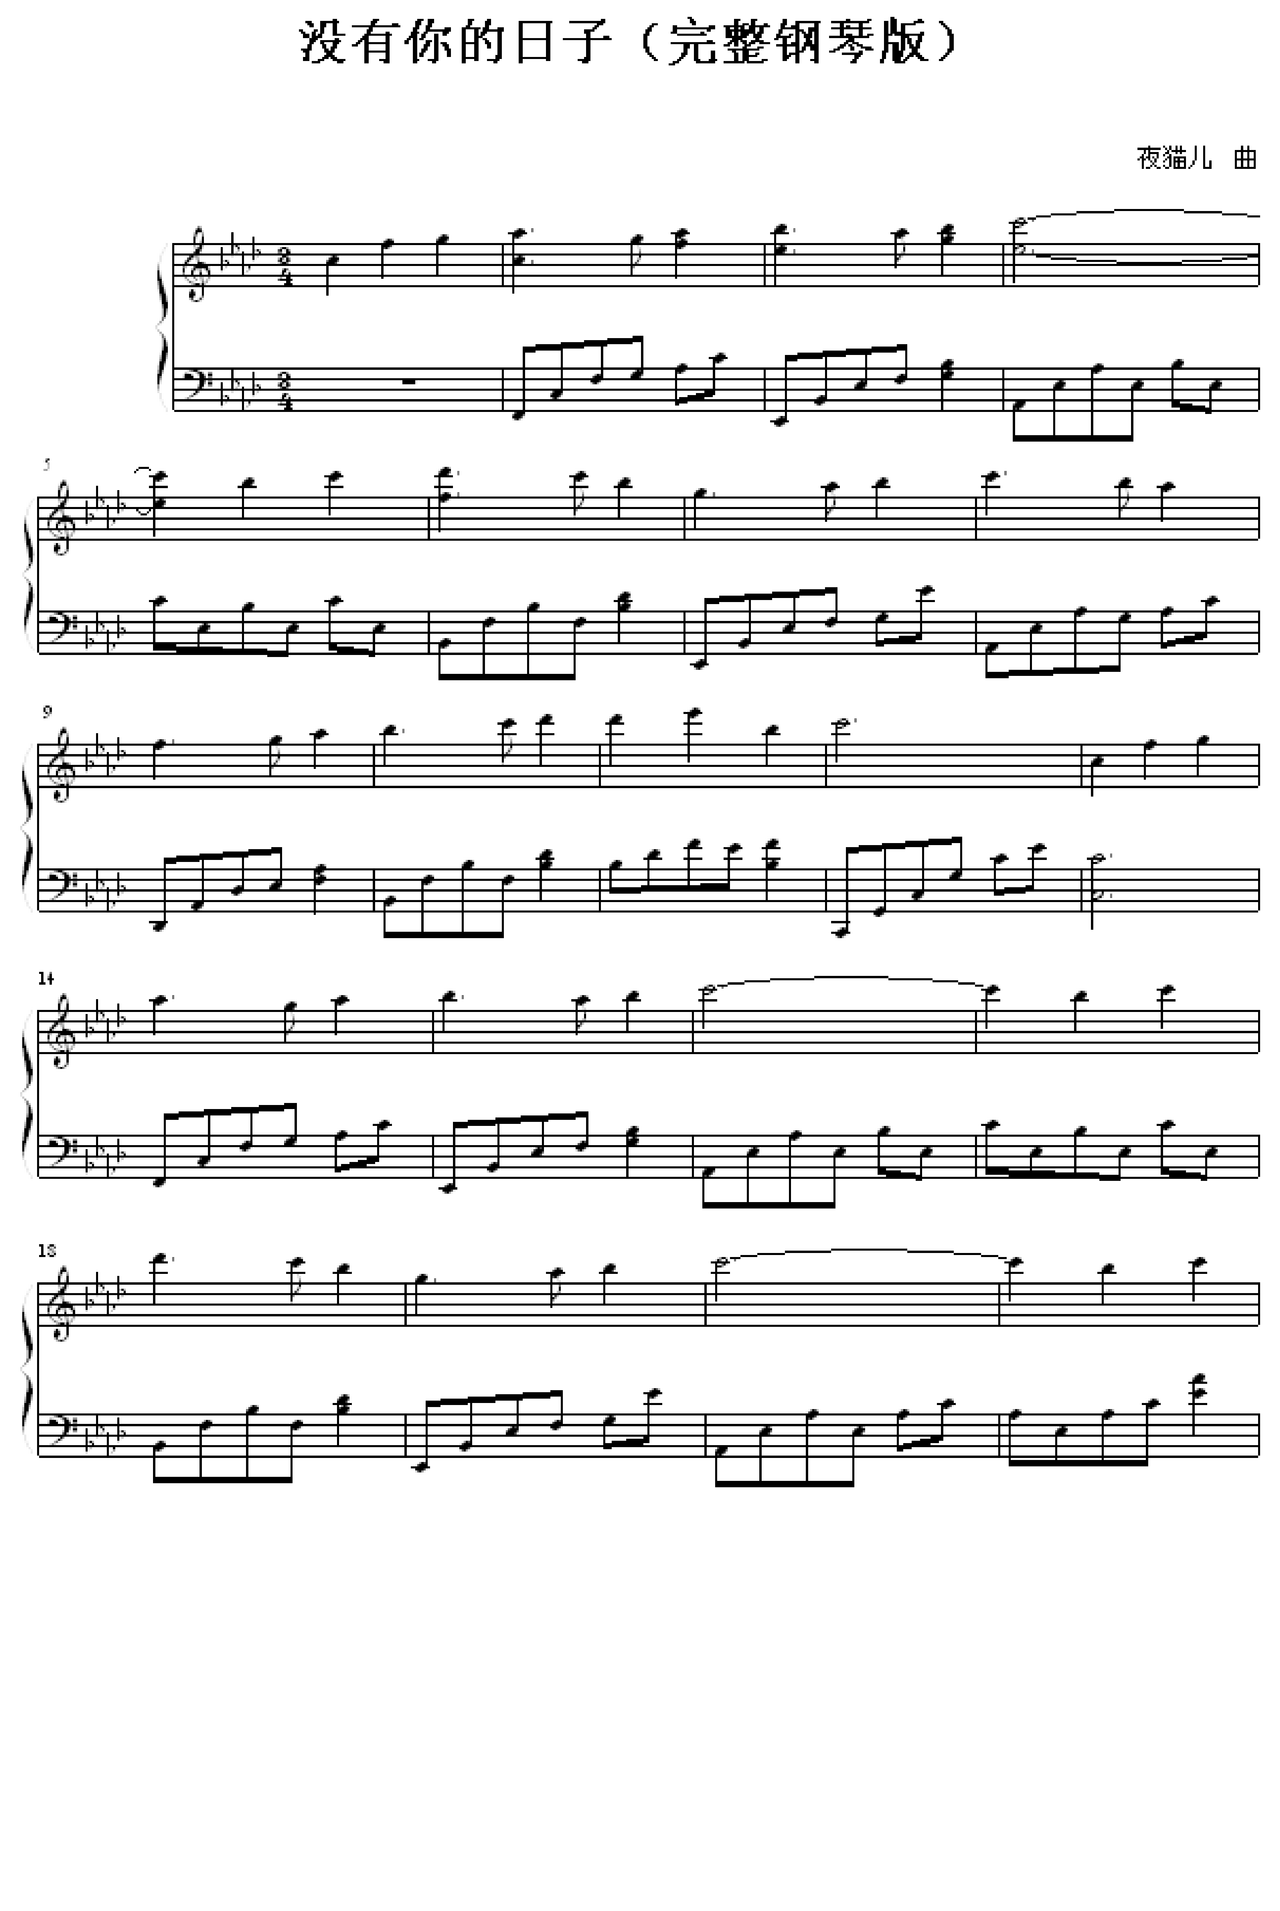 没有你的日子（完整钢琴版）
夜猫儿 曲
3
4
3
4
5
9
14
18